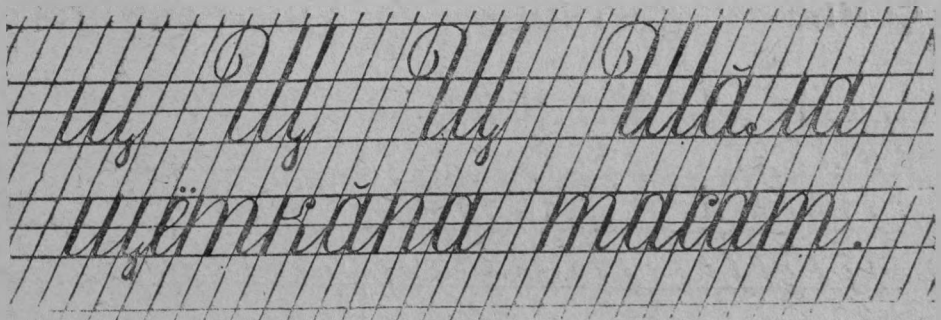 щ Щ Щ Шăла
щёткăпа тасат.